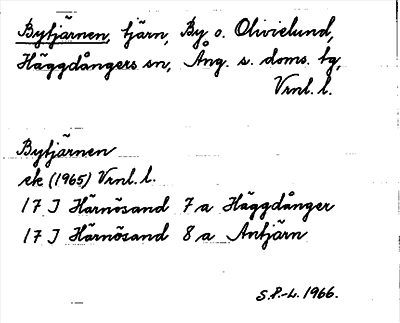 Bytjärnen, tjärn, By o. Olivielund,
Häggdångers sn, Ång. s. doms. tg,
Vnl. l.
Bytjärnen
ek (1965) Vnl. l.
17 J Härnösand 7 a Häggdånger
17 J Härnösand 8 a Antjärn
S.P.-L. 1966.